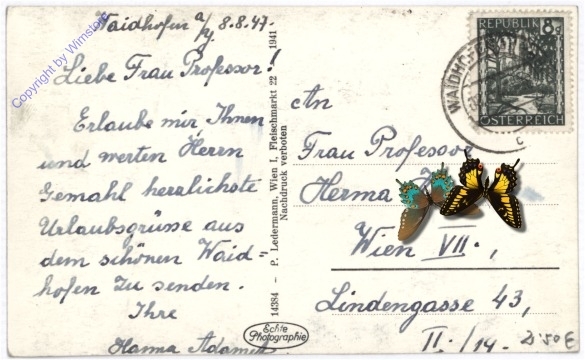 Waidhofen a/Y. 8.8.47.
Liebe Frau Professor!
Erlaube mir, Ihnen
und werten Herrn
Gemahl herzlichste
Urlaubsgrüsse aus
dem schönen Waid=
hofen zu senden.
Ihre
Hanna
14384 – P. Ledermann, Wien I, Fleischmarkt 22 1941
Nachdruck verboten
Echte
Photographie
REPUBLIK 8g
ÖSTERREICH
WAIDHOFEN
c
An
Frau Professor
Herma
Wien VII.,
Lindengasse 43,
II./14.
2.50€
Copyright by Wimstore